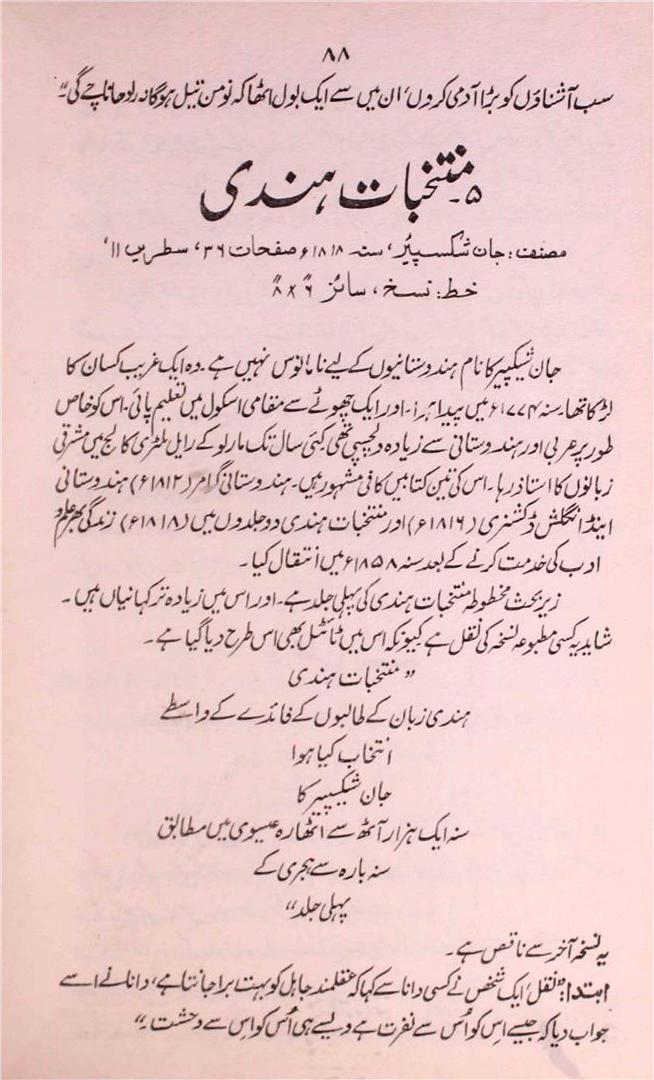 ۸۸
سب آشناؤں کو بڑا آدمی کروں‘ ان میں سے ایک بول اٹھا کہ نو من تیل ہوگا نہ رادھا ناچے گی۔“
۵۔ منتخبات ہندی
مصنف: جان شکسپیئر، سنہ ۱۸۱۸ء صفحات ۳۶، سطریں ۱۱،
خط: نسخ، سائز ۶ً × ۸ً
جان شیکسپیر کا نام ہندوستانیوں کے لیے نامانوس نہیں ہے۔ وہ ایک غریب کسان کا
لڑکا تھا۔ سنہ ۱۷۷۴ء میں پیدا ہوا۔ اور ایک چھوٹے سے مقامی اسکول میں تعلیم پائی۔ اس کو خاص
طور پر عربی اور ہندوستانی سے زیادہ دلچسپی تھی کئی سال تک مارلو کے رایل ملٹری کالج میں مشرقی
زبانوں کا استاد رہا۔ اس کی تین کتابیں کافی مشہور ہیں۔ ہندوستانی گرامر (۱۸۱۲ء) ہندوستانی
اینڈ انگلش ڈکشنری (۱۸۱۶ء) اور منتخبات ہندی دو جلدوں میں (۱۸۱۸ء) زندگی بھر علم و
ادب کی خدمت کرنے کے بعد سنہ ۱۸۵۸ء میں انتقال کیا۔
زیر بحث مخطوطہ منتخبات ہندی کی پہلی جلد ہے۔ اور اس میں زیادہ تر کہانیاں ہیں۔
شاید یہ کسی مطبوعہ نسخہ کی نقل ہے کیونکہ اس میں ٹائٹل بھی اس طرح دیا گیا ہے۔
”منتخبات ہندی
ہندی زبان کے طالبوں کے فائدے کے واسطے
انتخاب کیا ہوا
جان شیکسپیر کا
سنہ ایک ہزار آٹھ سے اٹھارہ عیسوی میں مطابق
سنہ بارہ سے ہجری کے
پہلی جلد“
یہ نسخہ آخر سے ناقص ہے۔
ابتدا: ”نقل‘ ایک شخص نے کسی دانا سے کہا کہ عقلمند جاہل کو بہت برا جانتا ہے، دانا نے اسے
جواب دیا کہ جیسے اِس کو اُس سے نفرت ہے ویسے ہی اُس کو اِس سے دحشت۔“